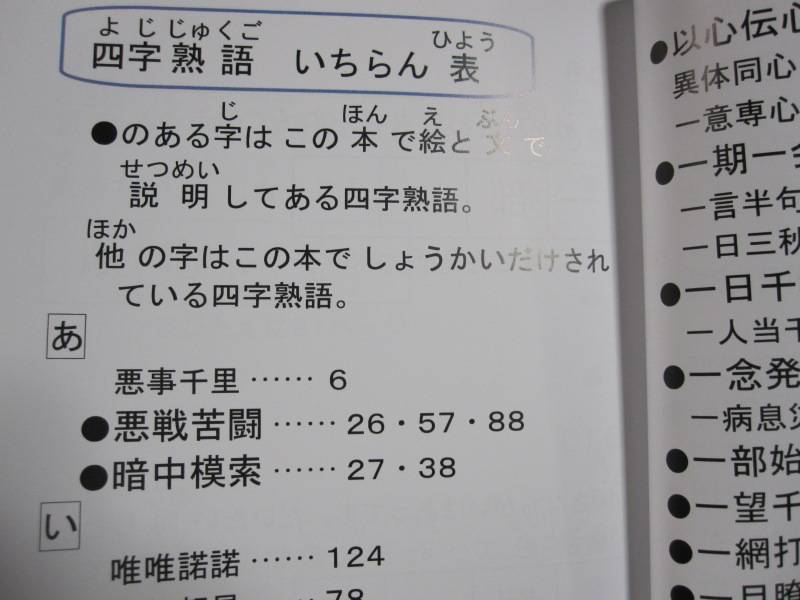 よじじゅくご ひよう
四字熟語 いちらん表
じ ほん え ぶん
●のある字は この本で絵と文で
せつめい
説明してある四字熟語。
ほか
他の字はこの本で しょうかいだけされ
ている四字熟語。
あ
悪事千里 …… 6
●悪戦苦闘 …… 26・57・88
●暗中模索 …… 27・38
い
唯唯諾諾 …… 124
78
●以心伝心
異体同心
一意専心
●一期一会
一言半句
一日三秋
●一日千
一人当千
●一念発
一病息災
●一部始
●一望千
●一網打
●一目瞭